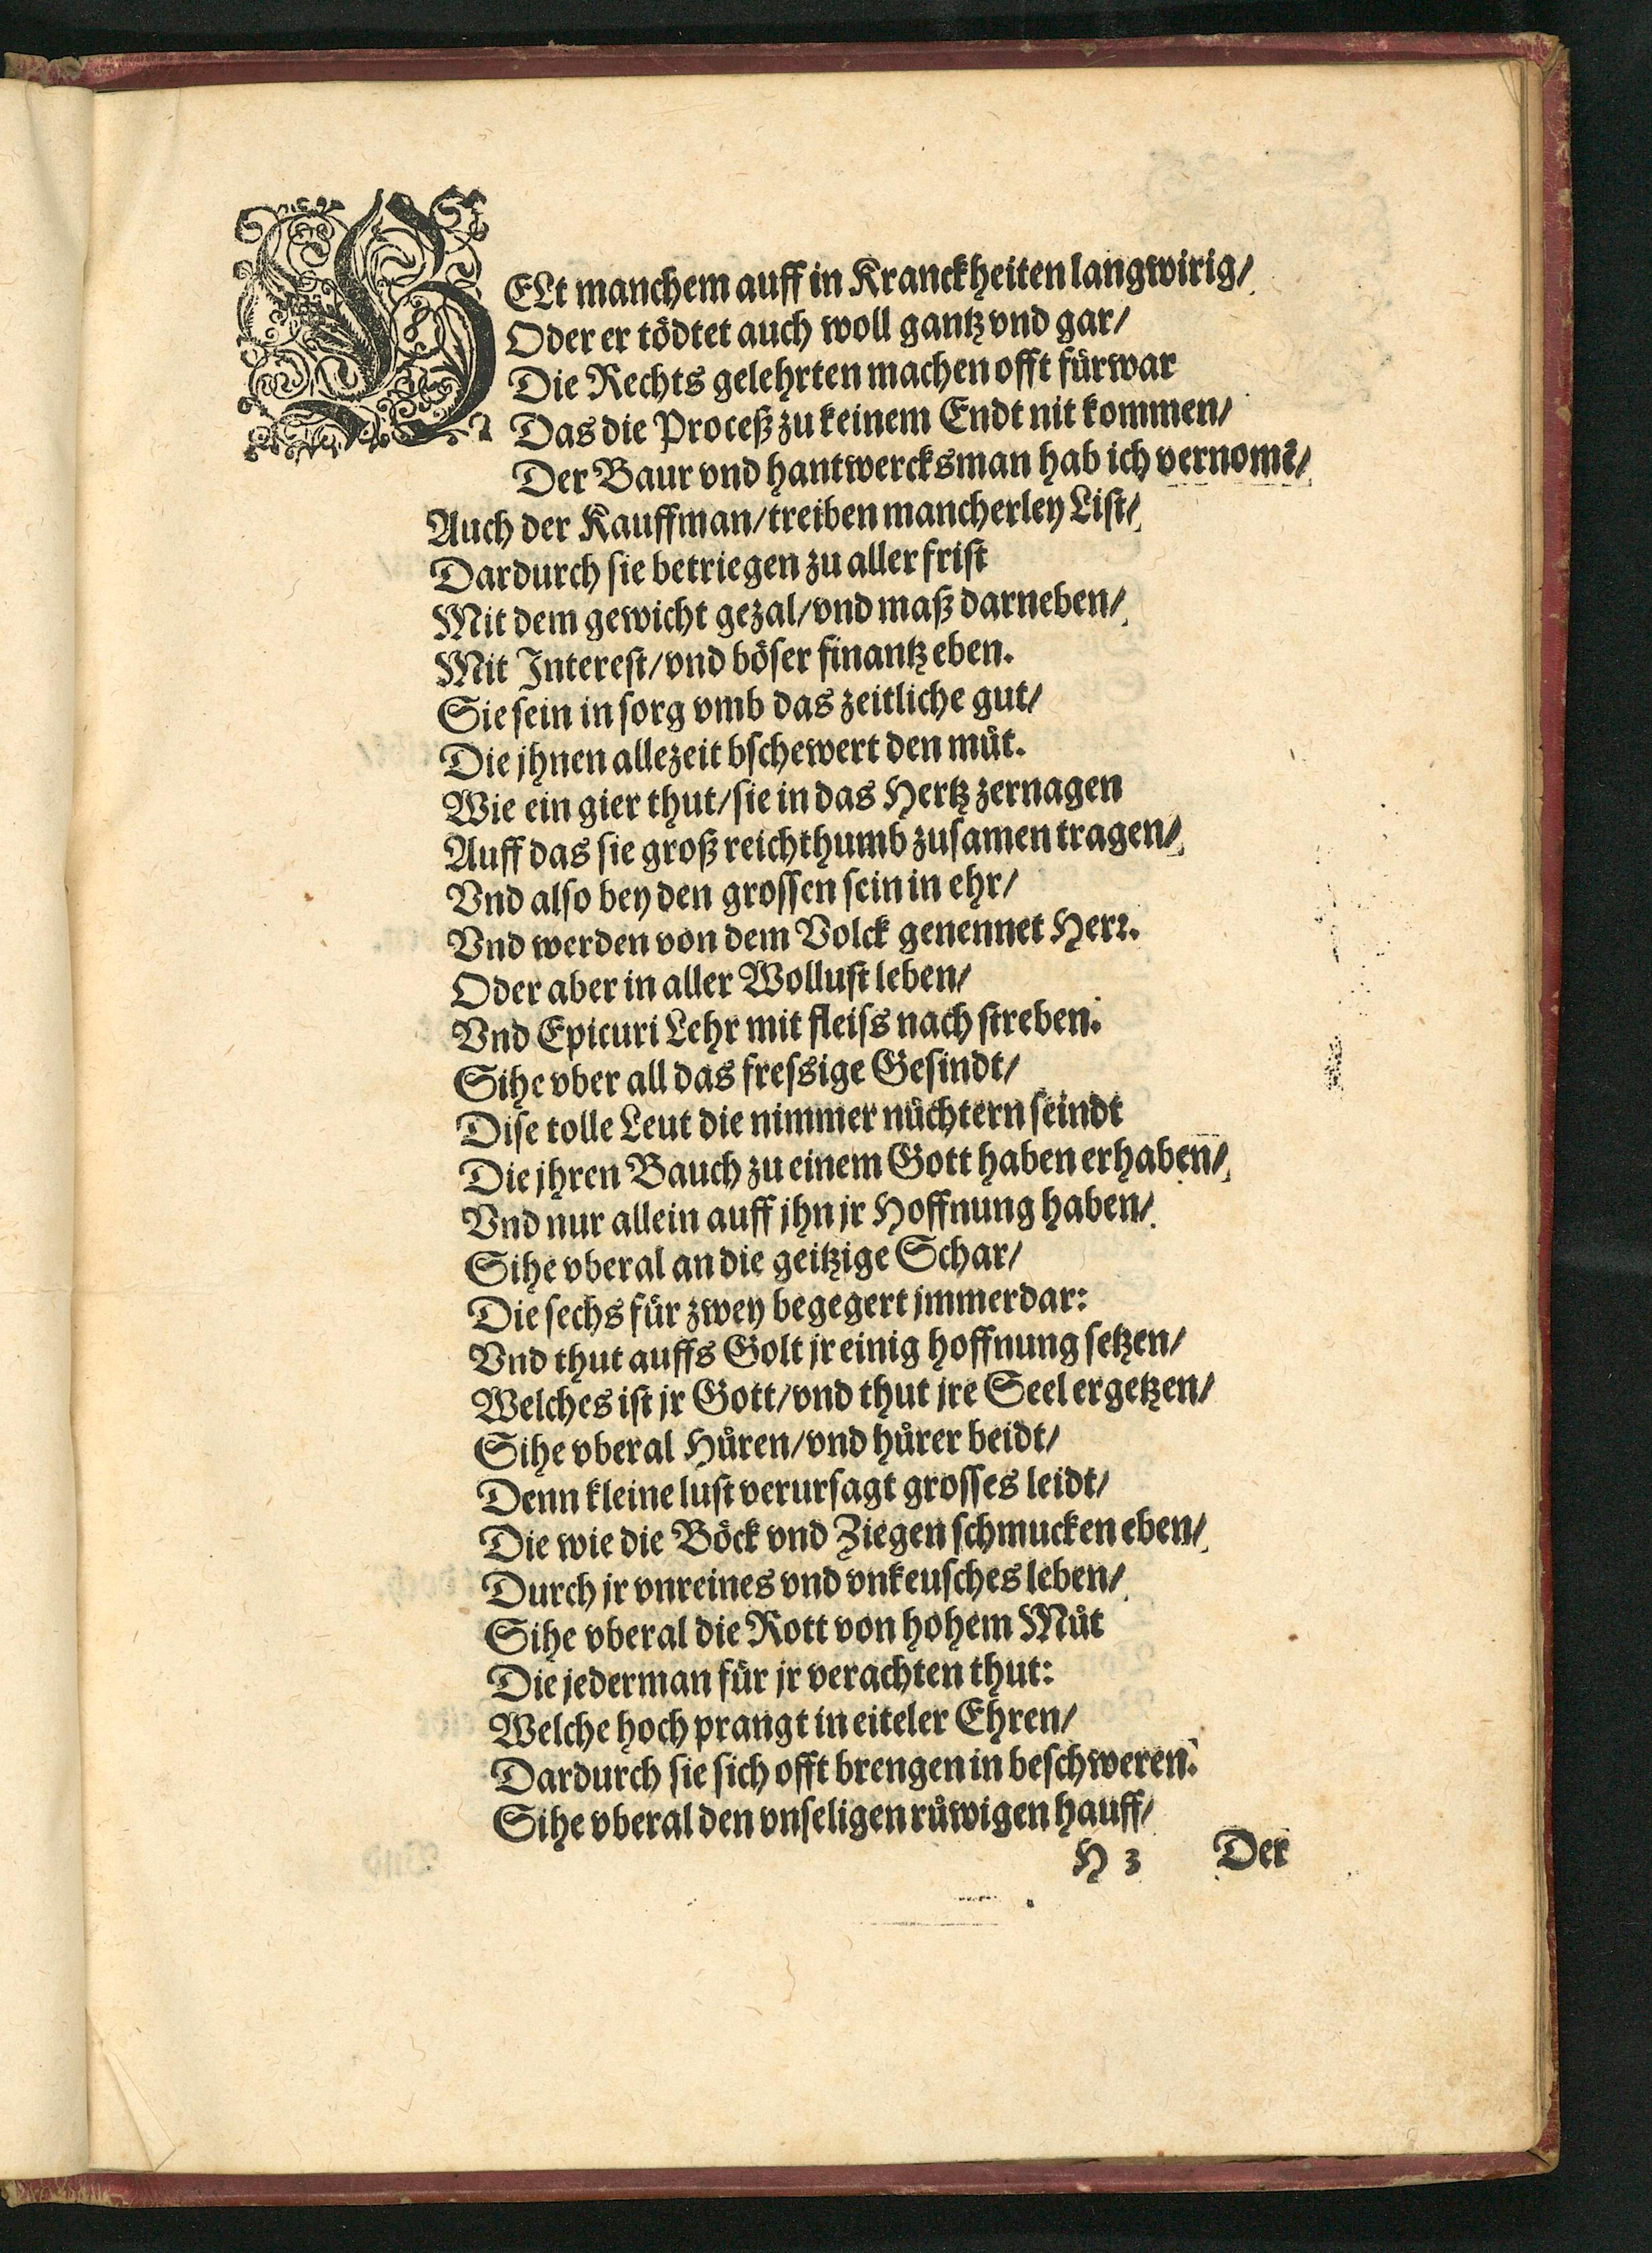 HELt manchem auff in Kranckheiten langwirig/
Oder er tödtet auch woll gantz vnd gar/
Die Rechts gelehrten machen offt fürwar
Das die Proceß zu keinem Endt nit kommen/
Der Baur vnd hantwercksman hab ich vernomē/
Auch der Kauffman/treiben mancherley List/
Dardurch sie betriegen zu aller frist
Mit dem gewicht gezal/vnd maß darneben/
Mit Interest/vnd böser finantz eben.
Sie sein in sorg vmb das zeitliche gut/
Die jhnen allezeit bschewert den můt.
Wie ein gier thut/sie in das Hertz zernagen
Auff das sie groß reichthumb zusamen tragen/
Vnd also bey den grossen sein in ehr/
Vnd werden von dem Volck genennet Herꝛ.
Oder aber in aller Wollust leben/
Vnd Epicuri Lehr mit fleiss nach streben.
Sihe vber all das fressige Gesindt/
Dise tolle Leut die nimmer nüchtern seindt
Die jhren Bauch zu einem Gott haben erhaben/
Vnd nur allein auff jhn jr Hoffnung haben/
Sihe vberal an die geitzige Schar/
Die sechs für zwey begegert jmmerdar:
Vnd thut auffs Golt jr einig hoffnung setzen/
Welches ist jr Gott/vnd thut jre Seel ergetzen/
Sihe vberal Hůren/vnd hůrer beidt/
Denn kleine lust verursagt grosses leidt/
Die wie die Böck vnd Ziegen schmucken eben/
Durch jr vnreines vnd vnkeusches leben/
Sihe vberal die Rott von hohem Můt
Die jederman für jr verachten thut:
Welche hoch prangt in eiteler Ehren/
Dardurch sie sich offt brengen in beschweren.
Sihe vberal den vnseligen růwigen hauff/
H 3 Der